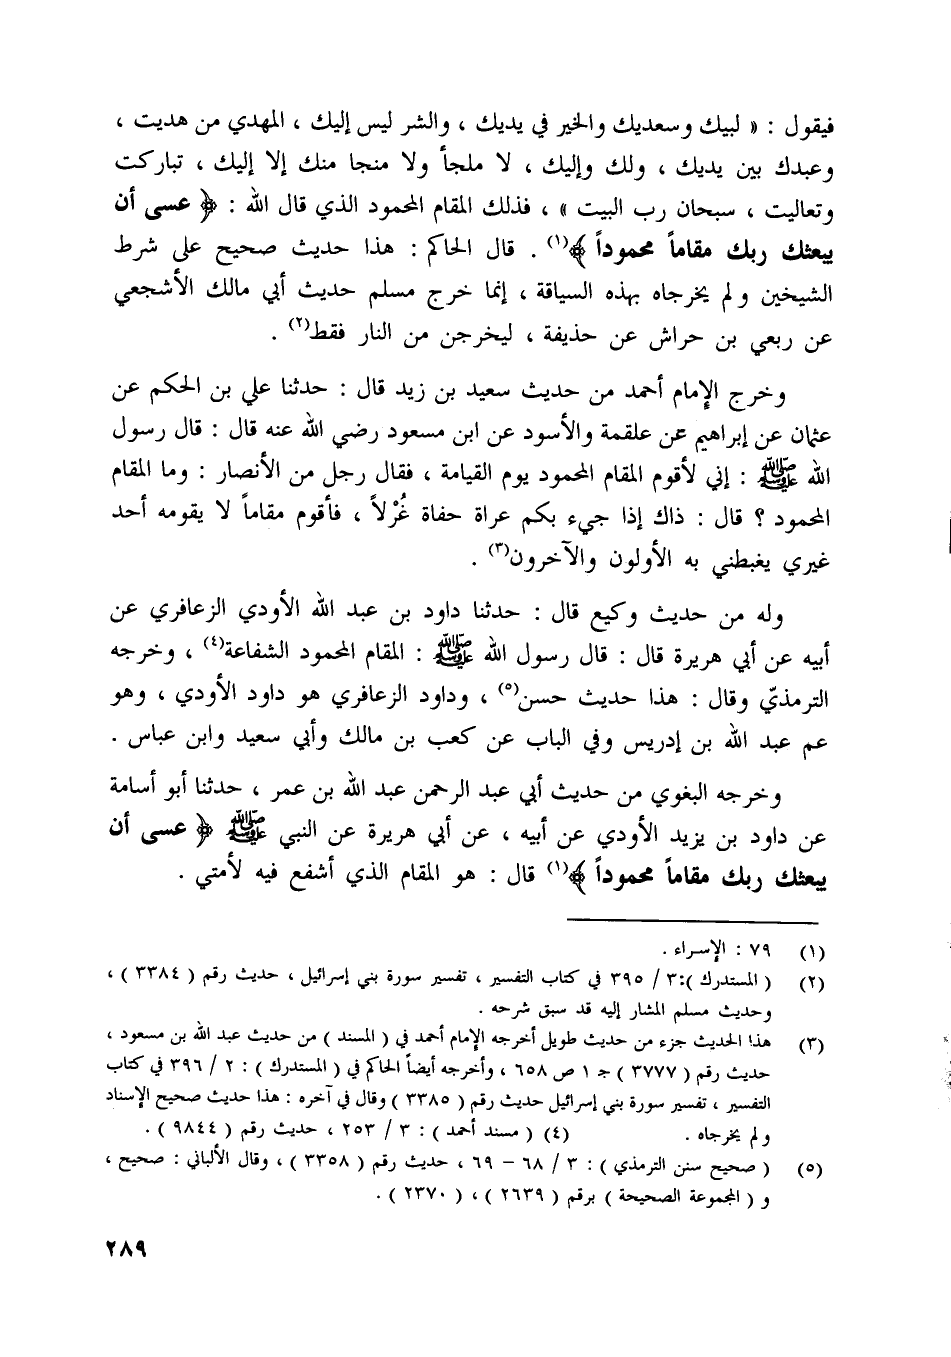 فيقول : « لبيك وسعديك والخير في يديك ، والشر ليس إليك ، المهدي من هديت ،
وعبدك بين يديك ، ولك وإليك ، لا ملجأ ولا منجا منك إلا إليك ، تباركت
وتعاليت ، سبحان رب البيت » ، فذلك المقام المحمود الذي قال الله : ﴿ عسى أن
يبعثك ربك مقاماً محموداً ﴾(١) . قال الحاكم : هذا حديث صحيح على شرط
الشيخين ولم يخرجاه بهذه السياقة ، إنما خرج مسلم حديث أبي مالك الأشجعي
عن ربعي بن حراش عن حذيفة ، ليخرجن من النار فقط(٢) .
وخرج الإمام أحمد من حديث سعيد بن زيد قال : حدثنا علي بن الحكم عن
عثمان عن إبراهيم عن علقمة والأسود عن ابن مسعود رضي الله عنه قال : قال رسول
الله ﷺ : إني لأقوم المقام المحمود يوم القيامة ، فقال رجل من الأنصار : وما المقام
المحمود ؟ قال : ذاك إذا جيء بكم عراة حفاة غُرْلاً ، فأقوم مقاماً لا يقومه أحد
غيري يغبطني به الأولون والآخرون(٣) .
وله من حديث وكيع قال : حدثنا داود بن عبد الله الأودي الزعافري عن
أبيه عن أبي هريرة قال : قال رسول الله ﷺ : المقام المحمود الشفاعة(٤) ، وخرجه
الترمذيّ وقال : هذا حديث حسن(٥) ، وداود الزعافري هو داود الأودي ، وهو
عم عبد الله بن إدريس وفي الباب عن كعب بن مالك وأبي سعيد وابن عباس .
وخرجه البغوي من حديث أبي عبد الرحمن عبد الله بن عمر ، حدثنا أبو أسامة
عن داود بن يزيد الأودي عن أبيه ، عن أبي هريرة عن النبي ﷺ ﴿ عسى أن
يبعثك ربك مقاماً محموداً ﴾(١) قال : هو المقام الذي أشفع فيه لأمتي .
(١) ٧٩ : الإسراء .
(٢) ( المستدرك ):٣ / ٣٩٥ في كتاب التفسير ، تفسير سورة بني إسرائيل ، حديث رقم ( ٣٣٨٤ ) ،
وحديث مسلم المشار إليه قد سبق شرحه .
(٣) هذا الحديث جزء من حديث طويل أخرجه الإمام أحمد في ( المسند ) من حديث عبد الله بن مسعود ،
حديث رقم ( ٣٧٧٧ ) جـ ١ ص ٦٥٨ ، وأخرجه أيضاً الحاكم في ( المستدرك ) : ٢ / ٣٩٦ في كتاب
التفسير ، تفسير سورة بني إسرائيل حديث رقم ( ٣٣٨٥ ) وقال في آخره : هذا حديث صحيح الإسناد
ولم يخرجاه . (٤) ( مسند أحمد ) : ٣ / ٢٥٣ ، حديث رقم ( ٩٨٤٤ ) .
(٥) ( صحيح سنن الترمذي ) : ٣ / ٦٨ – ٦٩ ، حديث رقم ( ٣٣٥٨ ) ، وقال الألباني : صحيح ،
و ( المجموعة الصحيحة ) برقم ( ٢٦٣٩ ) ، ( ٢٣٧٠ ) .
٢٨٩